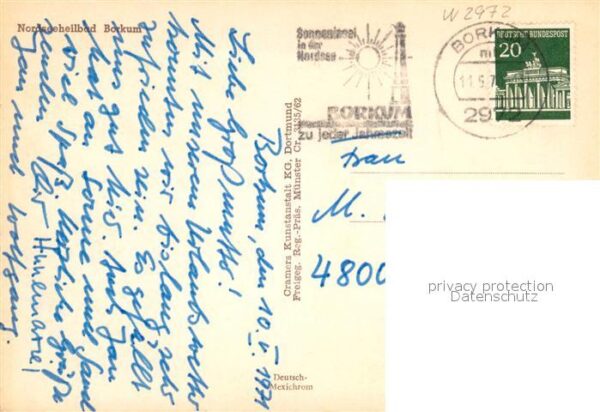 Nordseeheilbad Borkum
W 2972
Sonneninsel
in der
Nordsee
BORKUM
zu jeder Jahreszeit
BORKUM
11.5.7
2972
DEUTSCHE BUNDESPOST
20
Borkum, den 10.V.1971
Liebe Großmutter!
Mit unserem Urlaubswetter
konnten wir bislang sehr
zufrieden sein. Es gefällt
uns gut hier. Auch Jan
hat an Sonne und Sand
viel Spaß. Herzliche Grüße
senden Dir Annemarie,
Jan und Wolfgang.
Cramers Kunstanstalt KG, Dortmund
Freigeg. Reg.-Präs. Münster Cr. 3135/62
Deutsch-
Mexichrom
Frau
M.
4800
privacy protection
Datenschutz